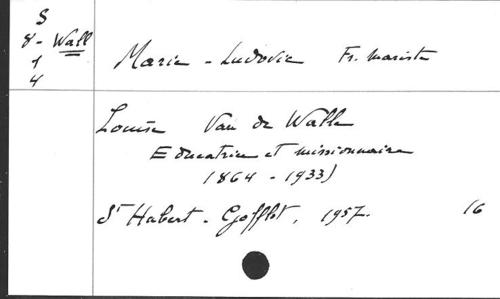 S
8 - Wall
1
4
Marie - Ludovic Fr. mariste
Louise Van de Walle
Educatrice et missionnaire
1864 - 1933)
St Hubert - Gofflot, 1957. 16